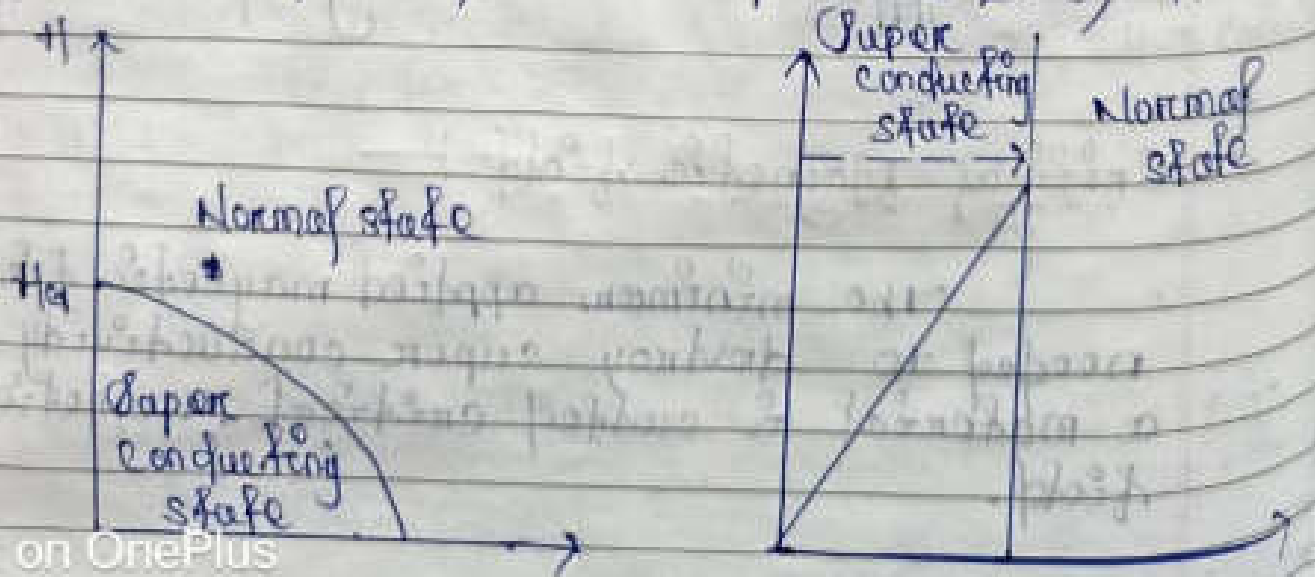 H
Normal state
Super
conducting
state
Super
conducting
state
Normal
state
on OnePlus